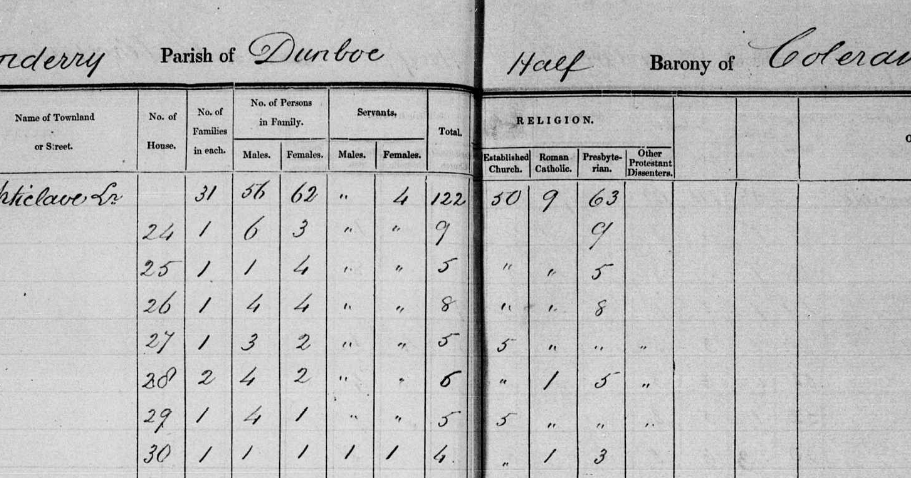 nderry Parish of Dunboe Half Barony of Colerai
Name of Townland or Street. No. of House. No. of Families in each. No. of Persons in Family. Servants, Total. RELIGION.
Males. Females. Males. Females. Established Church. Roman Catholic. Presbyterian. Other Protestant Dissenters.
hticlave Lr 31 56 62 " 4 122 50 9 63
24 1 6 3 " " 9 9
25 1 1 4 " " 5 " " 5
26 1 4 4 " " 8 " " 8
27 1 3 2 " " 5 5 " " "
28 2 4 2 " " 6 " 1 5 "
29 1 4 1 " " 5 5 " " "
30 1 1 1 1 1 4 " 1 3